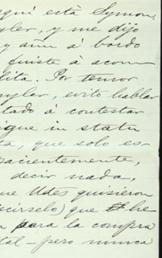 quí está Symon
yler, y me dijo
y aim á bordo
fuiste á acom
lita. Por temor
yler, evité hablar
tado á contestar
igue in statu
a, que solo es
pacientemente,
decir nada,
ue Udes quisieron
ecírselo) que He
n para la compra
tal – pero nunca